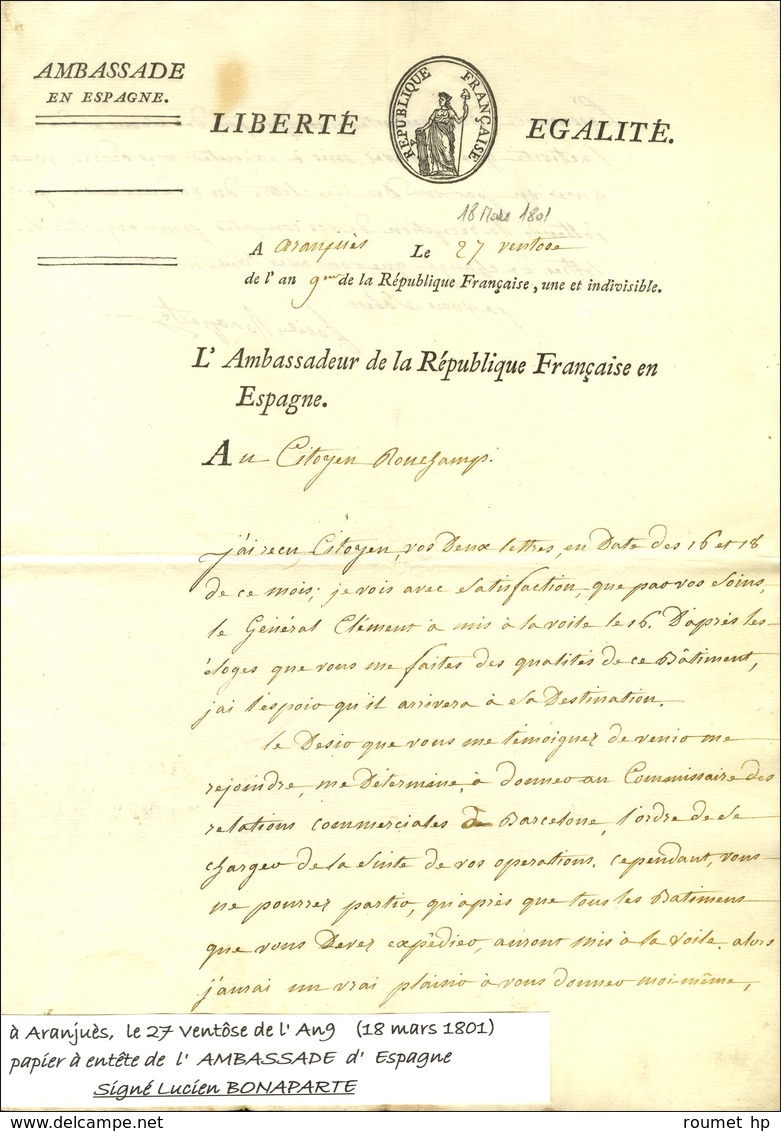 AMBASSADE
EN ESPAGNE.
LIBERTÉ
RÉPUBLIQUE FRANÇAISE
EGALITÉ.
18 Mars 1801
A aranjuès Le 27 ventose
de l'an 9me de la République Française, une et indivisible.
L'Ambassadeur de la République Française en
Espagne.
Au Citoyen Rouchamp.
j'ai reçu, Citoyen, vos Deux lettres, en Date des 16 et 18
de ce mois; je vois avec satisfaction, que par vos soins,
le Général Clément à mis à la voile le 16. D'après les
éloges que vous me faites des qualités de ce Bâtiment,
jai l'espoir qu'il arrivera à sa Destination.
le Desir que vous me témoignez de venir me
rejoindre, me Détermine, à donner au Commissaire des
relations commerciales de Barcelone, l'ordre de se
charger de la suite de vos operations. cependant, vous
ne pourrez partir, qu'après que tous les Batimens
que vous Devez expédier, auront mis à la voile. alors
j'aurai un vrai plaisir à vous donner moi-même,
à Aranjuès, le 27 Ventôse de l'An9 (18 mars 1801)
papier à entête de l' AMBASSADE d' Espagne
Signé Lucien BONAPARTE
roumet hp